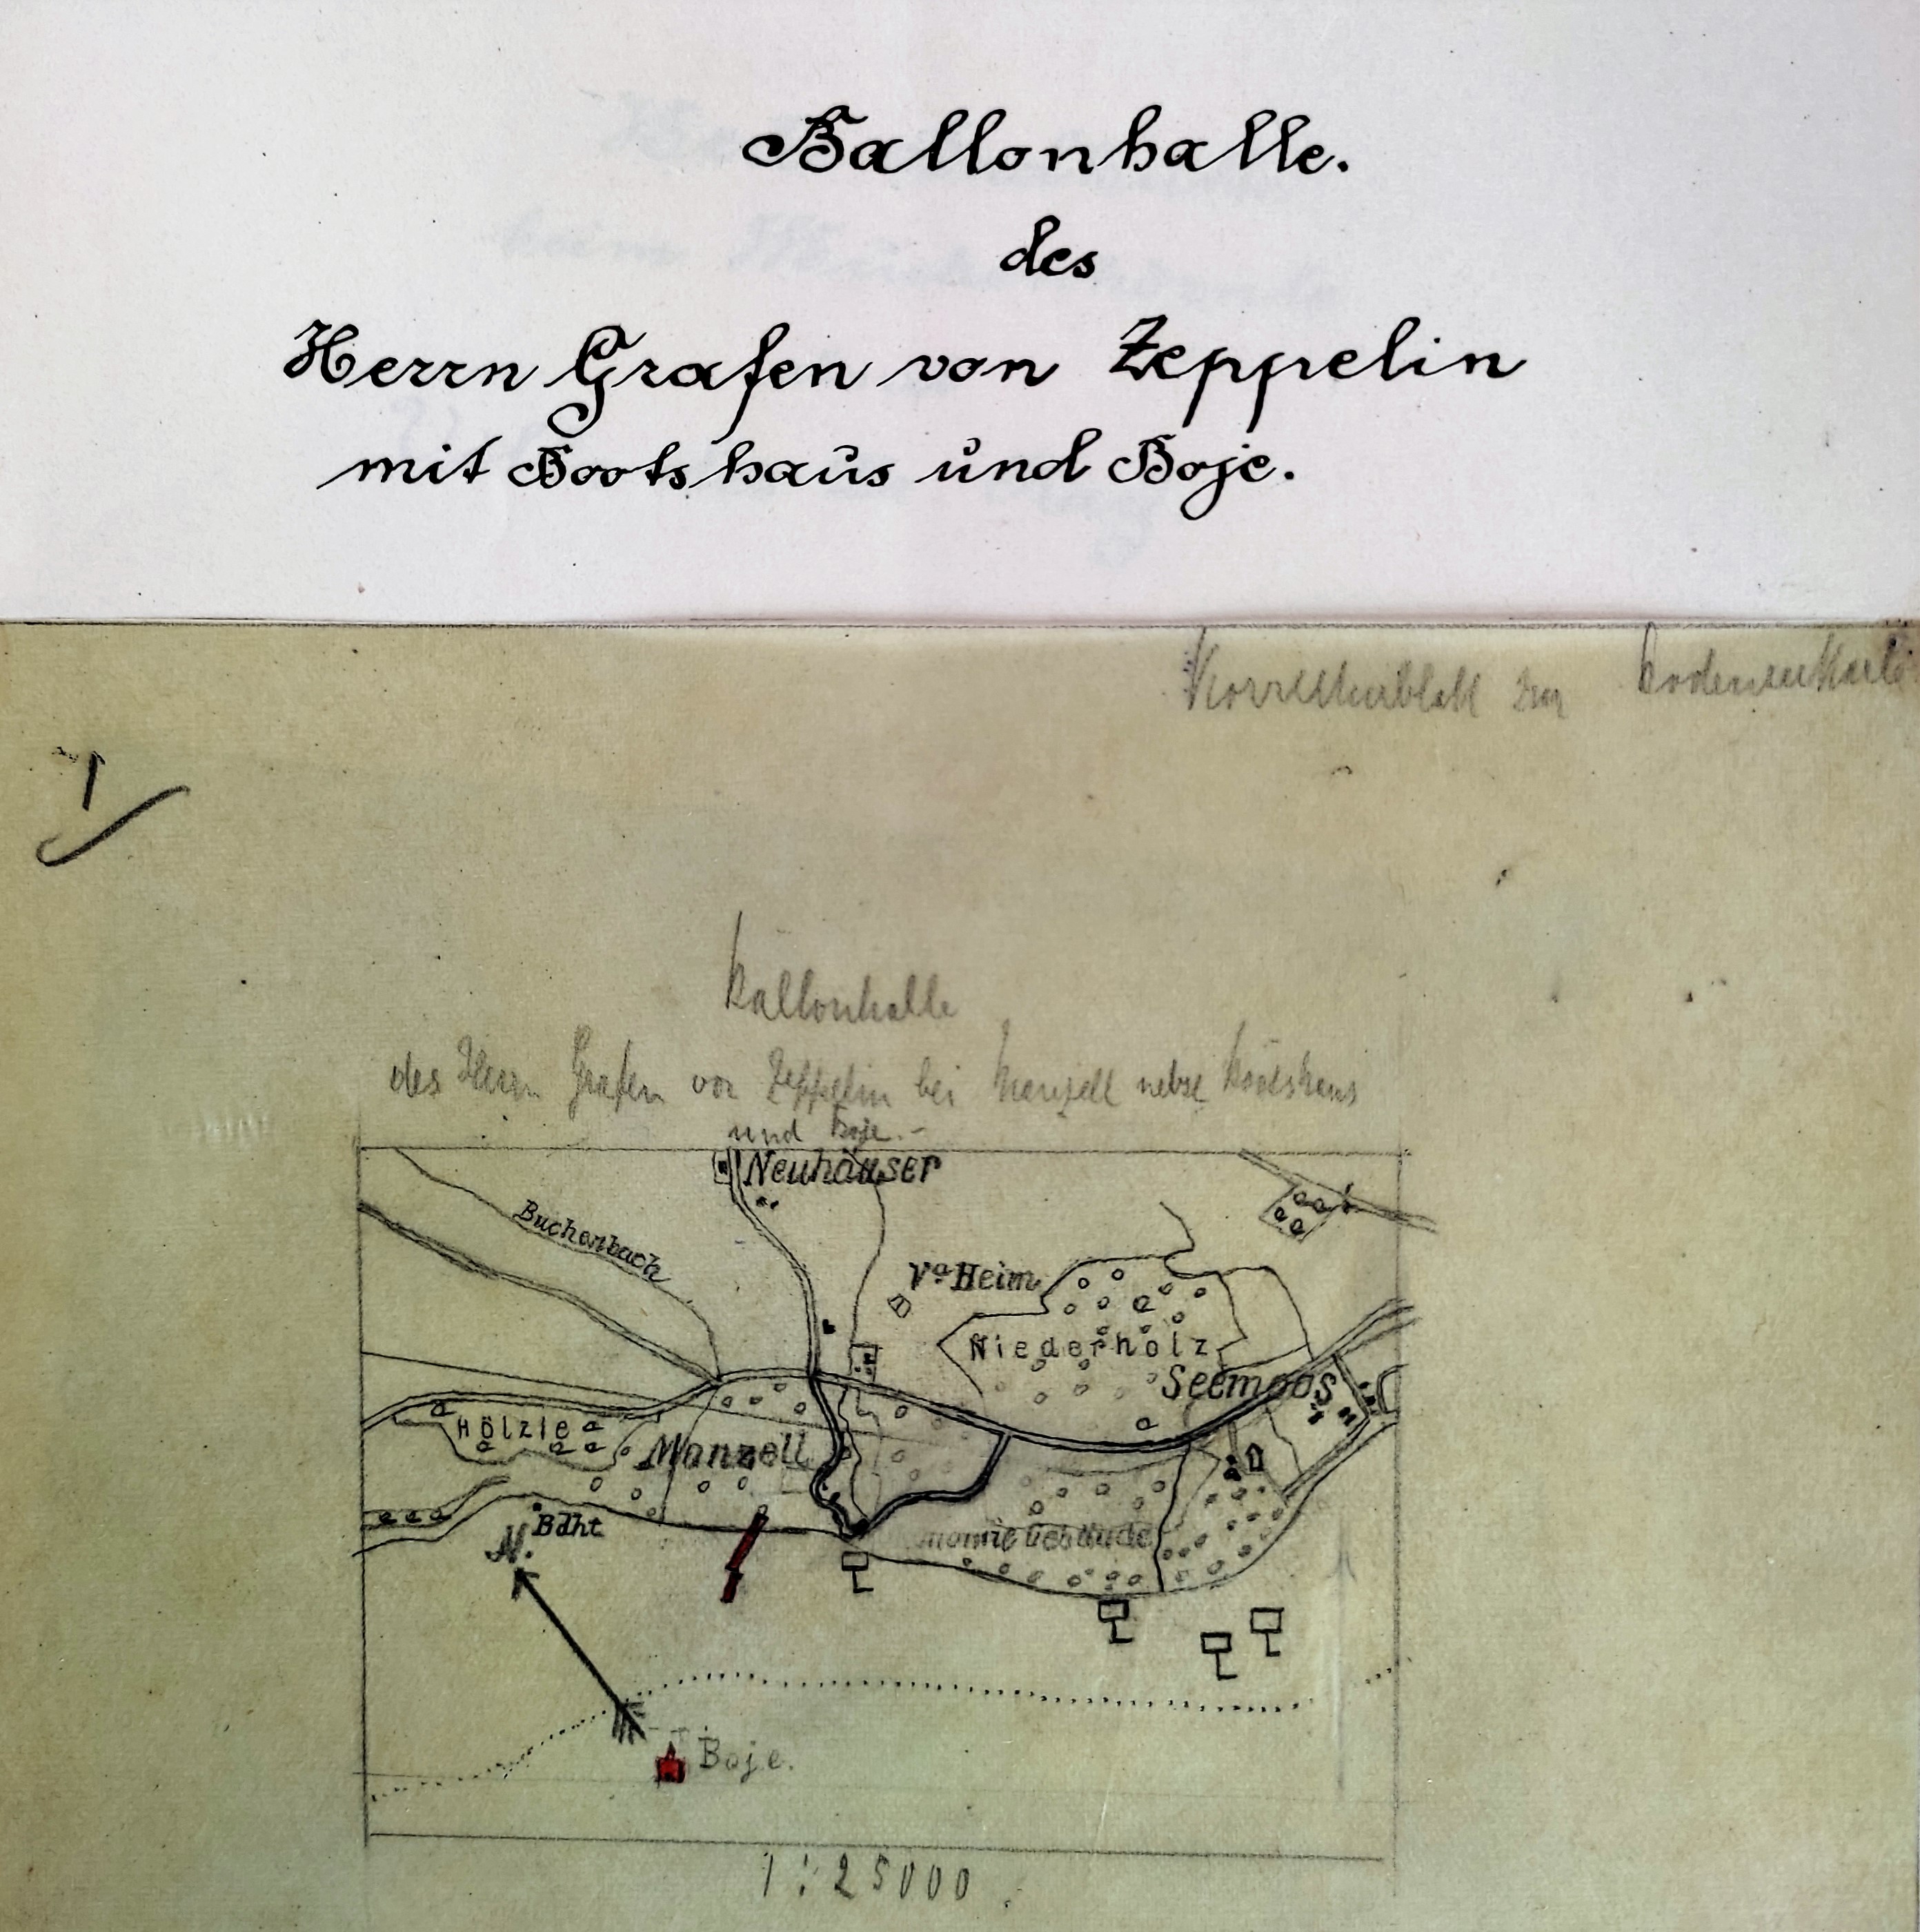 Ballonhalle.
des
Herrn Grafen von Zeppelin
mit Bootshaus und Boje.
Korrekturblatt zur Bodenseekarte
1
Ballonhalle
des Herrn Grafen von Zeppelin bei Manzell nebst Bootshaus
und Boje.-
Neuhäuser
Buchenbach
Va Heim
Niederholz
Seemoos
Hölzle
Manzell
Bdht
N.
Gebäude
Boje.
1:25000.